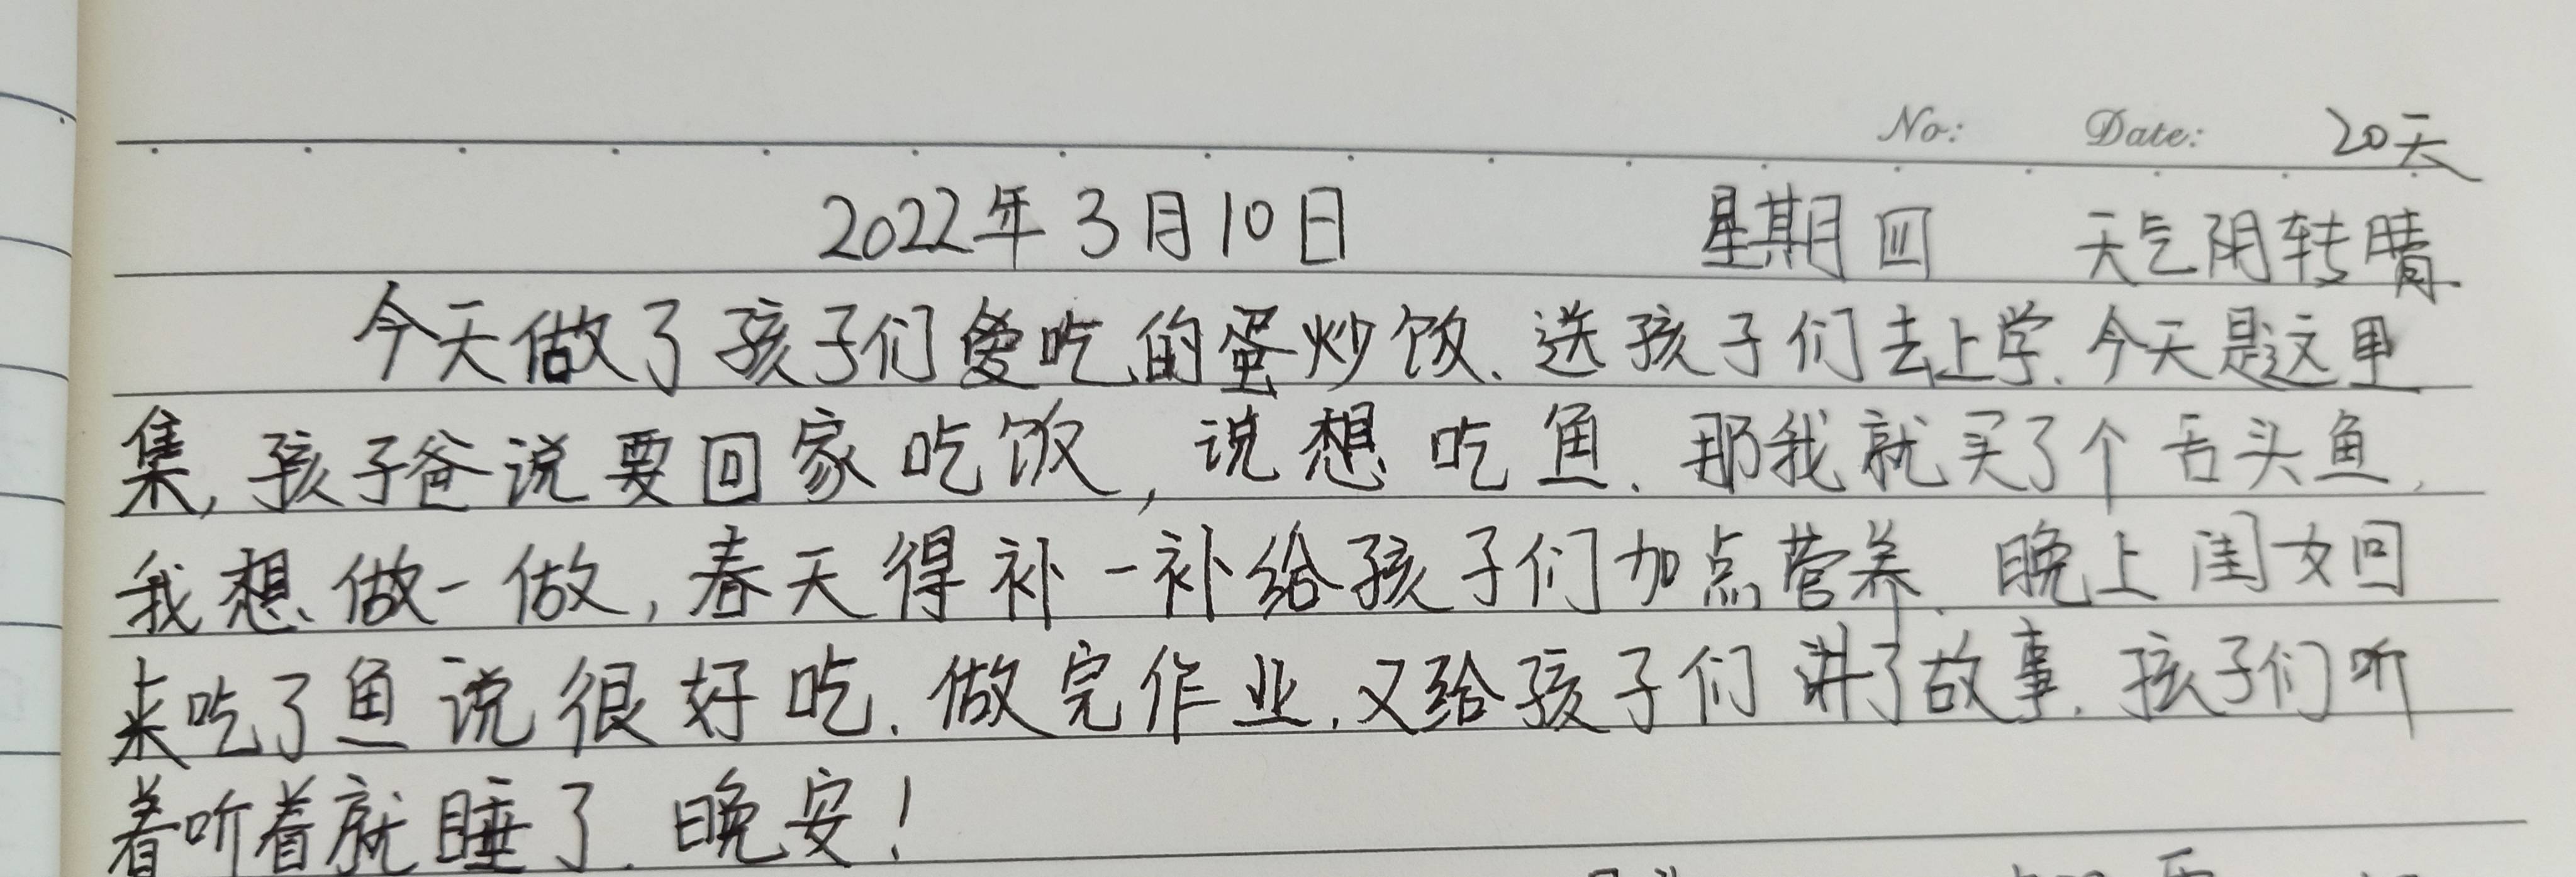 No: Date: 20天
2022年3月10日 星期四 天气阴转晴
今天做了孩子们爱吃的蛋炒饭.送孩子们去上学.今天是这里
集,孩子爸说要回家吃饭,说想吃鱼.那我就买了个舌头鱼,
我想做一做,春天得补一补给孩子们加点营养.晚上闺女回
来吃了鱼说很好吃.做完作业.又给孩子们讲了故事.孩子们听
着听着就睡了.晚安!